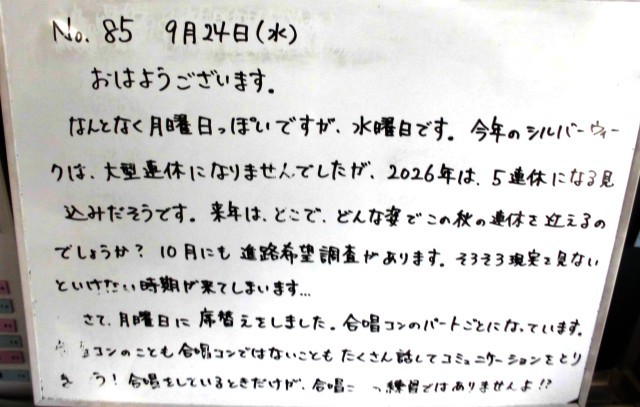 No. 85 9月24日(水)
おはようございます。
なんとなく月曜日っぽいですが、水曜日です。今年のシルバーウィー
クは、大型連休になりませんでしたが、2026年は、5連休になる見
込みだそうです。来年は、どこで、どんな姿でこの秋の連休を迎えるの
でしょうか? 10月にも進路希望調査があります。そろそろ現実を見ない
といけない時期が来てしまいます…
さて、月曜日に席替えをしました。合唱コンのパートごとになっています。
コンのことも合唱コンではないこともたくさん話してコミュニケーションをとり
う!合唱をしているときだけが、合唱 練習ではありませんよ!?